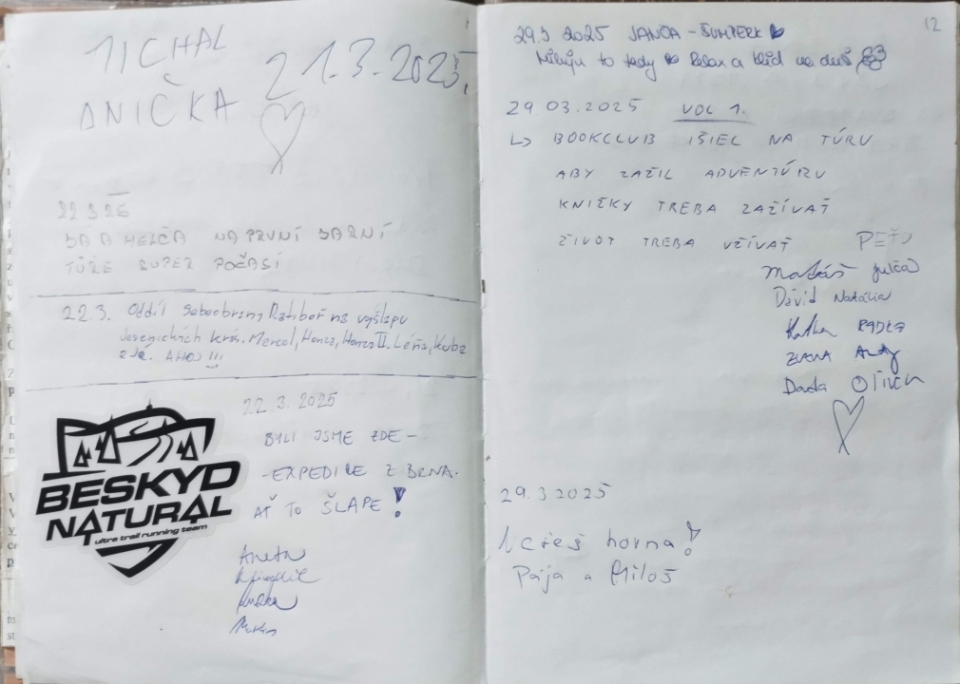 MICHAL
ANIČKA
21.3.2025.
22 3 25
JÁ A HELČA NA PRVNÍ JARNÍ
TÚŘE SUPER POČASÍ
22.3. Oddíl Sebeobrany Ratiboř na výšlapu
Jesenických krás. Marcel, Honza, Honza II. Léňa, Kuba
AHOJ !!!
22.3.2025
BYLI JSME ZDE -
- EXPEDICE Z BRNA.
AŤ TO ŠLAPE!
Aneta
Martin
BESKYD
NATURAL
ultra trail running team
12
29.3 2025 JANČA - ŠUMPERK
Miluju to tady Relax a klid na duši
29.03.2025 VOL 1.
↳ BOOKCLUB IŠIEL NA TÚRU
ABY ZAŽIL ADVENTÚRU
KNIŽKY TREBA ZAŽÍVAŤ
ŽIVOT TREBA UŽÍVAŤ
PEŤO
Matúš Julča
Dávid Natália
Katka RADKA
ZUZANA Andy
Dada
29.3 2025
horna!
Pája a Miloš